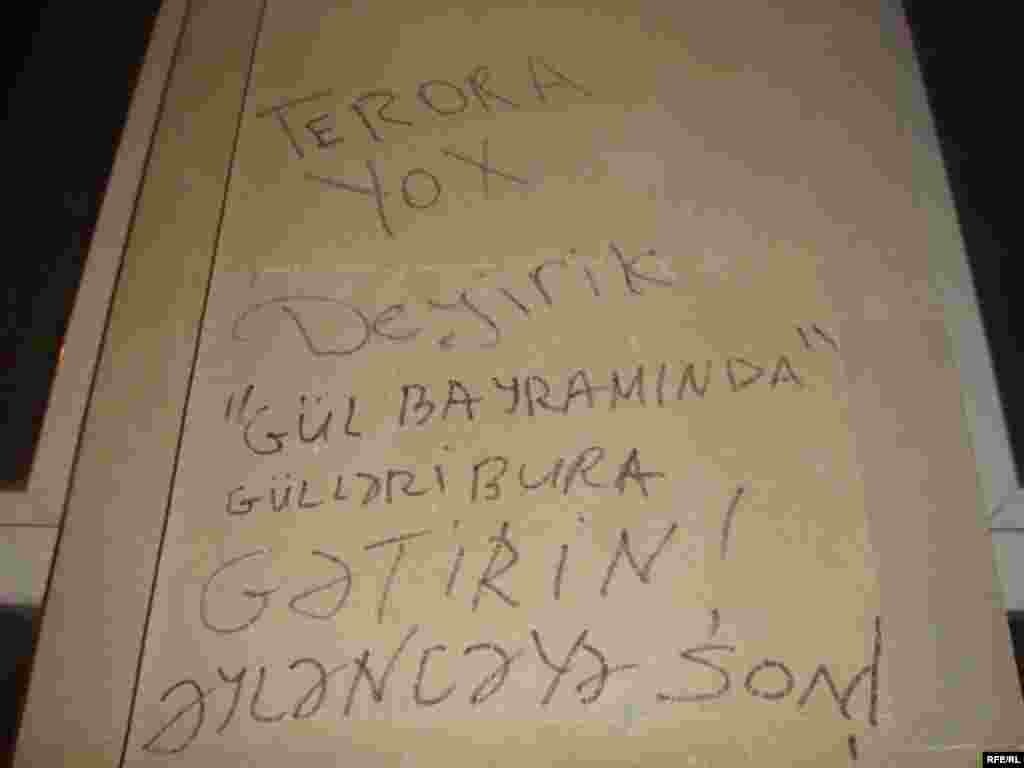 TERORA
YOX
Deyirik
"GÜL BAYRAMINDA"
GÜLLƏRİ BURA
GƏTİRİN!
ƏYLƏNCƏYƏ SON!
RFE/RL